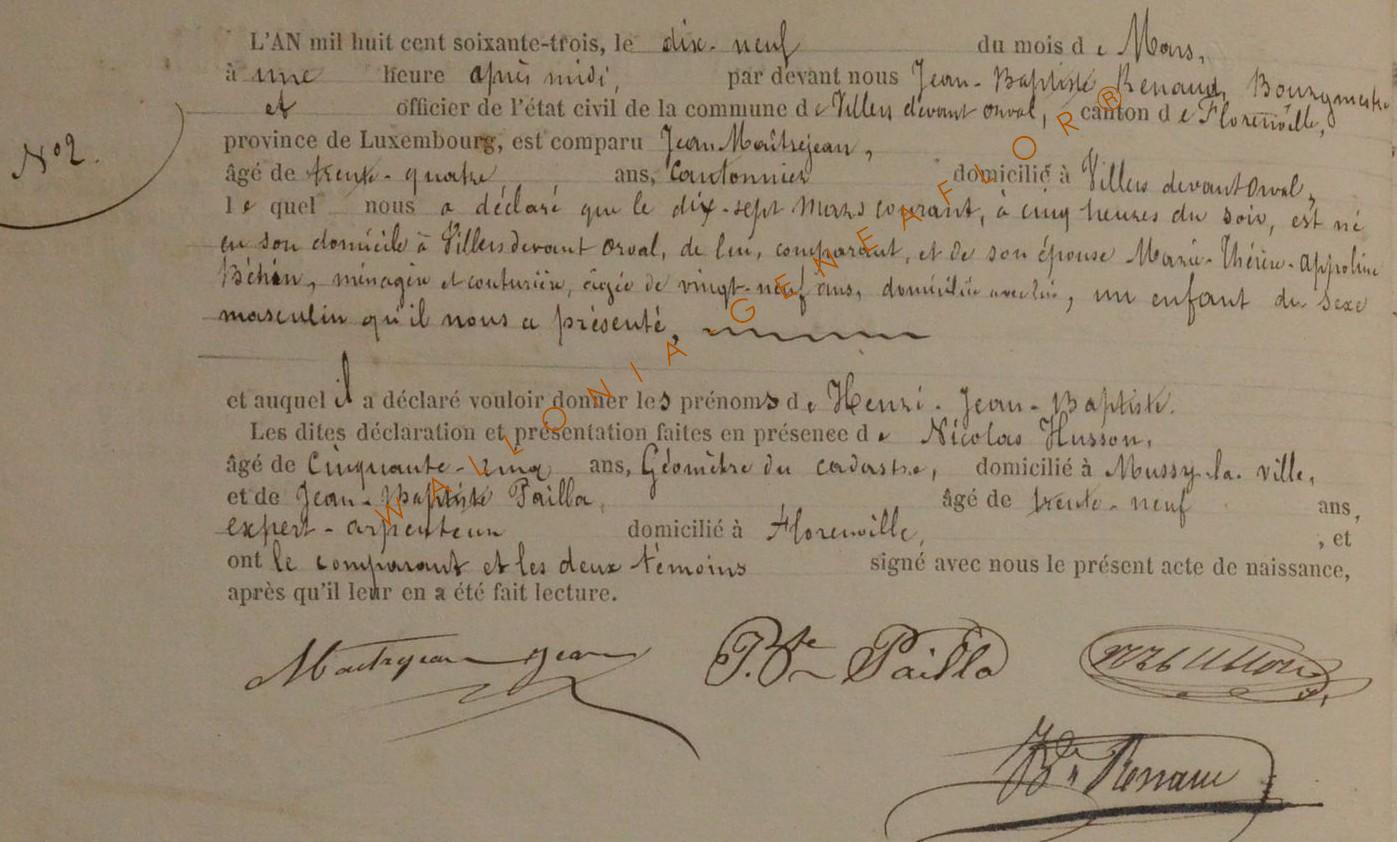 L'AN mil huit cent soixante-trois, le dix-neuf du mois de Mars,
à une heure après midi, par devant nous Jean-Baptiste Renaud, Bourgmestre
et officier de l'état civil de la commune de Villers devant orval, canton de Florenville,
N° 2.
province de Luxembourg, est comparu Jean Maitrejean,
âgé de trente-quatre ans, Cantonnier domicilié à Villers devant Orval,
le quel nous a déclaré que le dix-sept Mars courant, à cinq heures du soir, est né
en son domicile à Villers devant orval, de lui, comparant, et de son épouse Marie-Thérèse-appoline
Béchén, ménagère et couturière, âgée de vingt-neuf ans, domiciliée avec lui, un enfant du sexe
masculin qu'il nous a présenté,
et auquel il a déclaré vouloir donner les prénoms de Henri-Jean-Baptiste.
Les dites déclaration et présentation faites en présence de Nicolas Husson,
âgé de Cinquante-cinq ans, Géomètre du cadastre, domicilié à Mussy-la-ville,
et de Jean-Baptiste Pailla, âgé de trente-neuf ans,
expert-arpenteur domicilié à Florenville, , et
ont le comparant et les deux témoins signé avec nous le présent acte de naissance,
après qu'il leur en a été fait lecture.
Maitrejean Jean J.Bte Pailla Husson
JBte Renaud
WALLONIA GENEAFLOR®